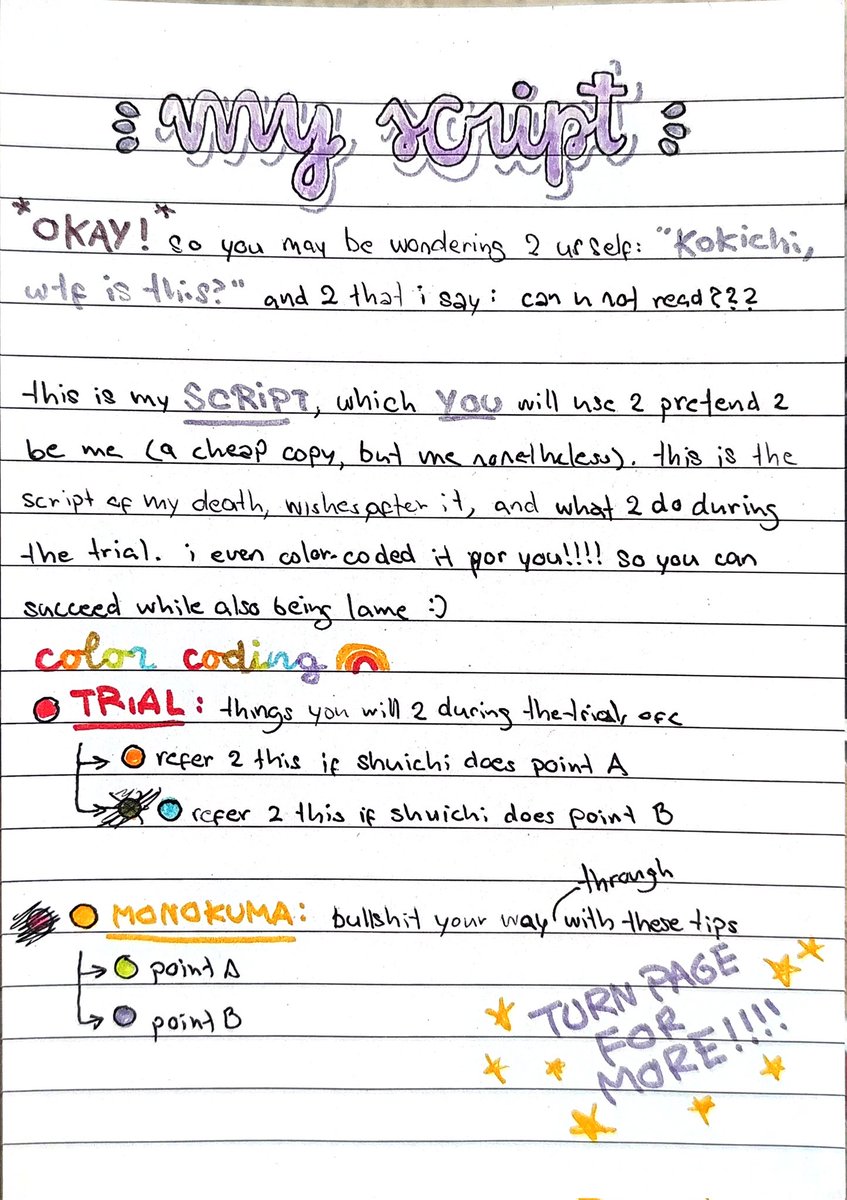 my script
*OKAY!* so you may be wondering 2 urself: "Kokichi,
wtf is this?" and 2 that i say: can u not read???
this is my SCRIPT, which YOU will use 2 pretend 2
be me (a cheap copy, but me nonetheless). this is the
script of my death, wishes after it, and what 2 do during
the trial. i even color-coded it for you!!!! so you can
succeed while also being lame :)
color coding
TRIAL: things you will 2 during the trial, ofc
refer 2 this if shuichi does point A
refer 2 this if shuichi does point B
through
MONOKUMA: bullshit your way with these tips
point A
point B
TURN PAGE
FOR
MORE!!!!